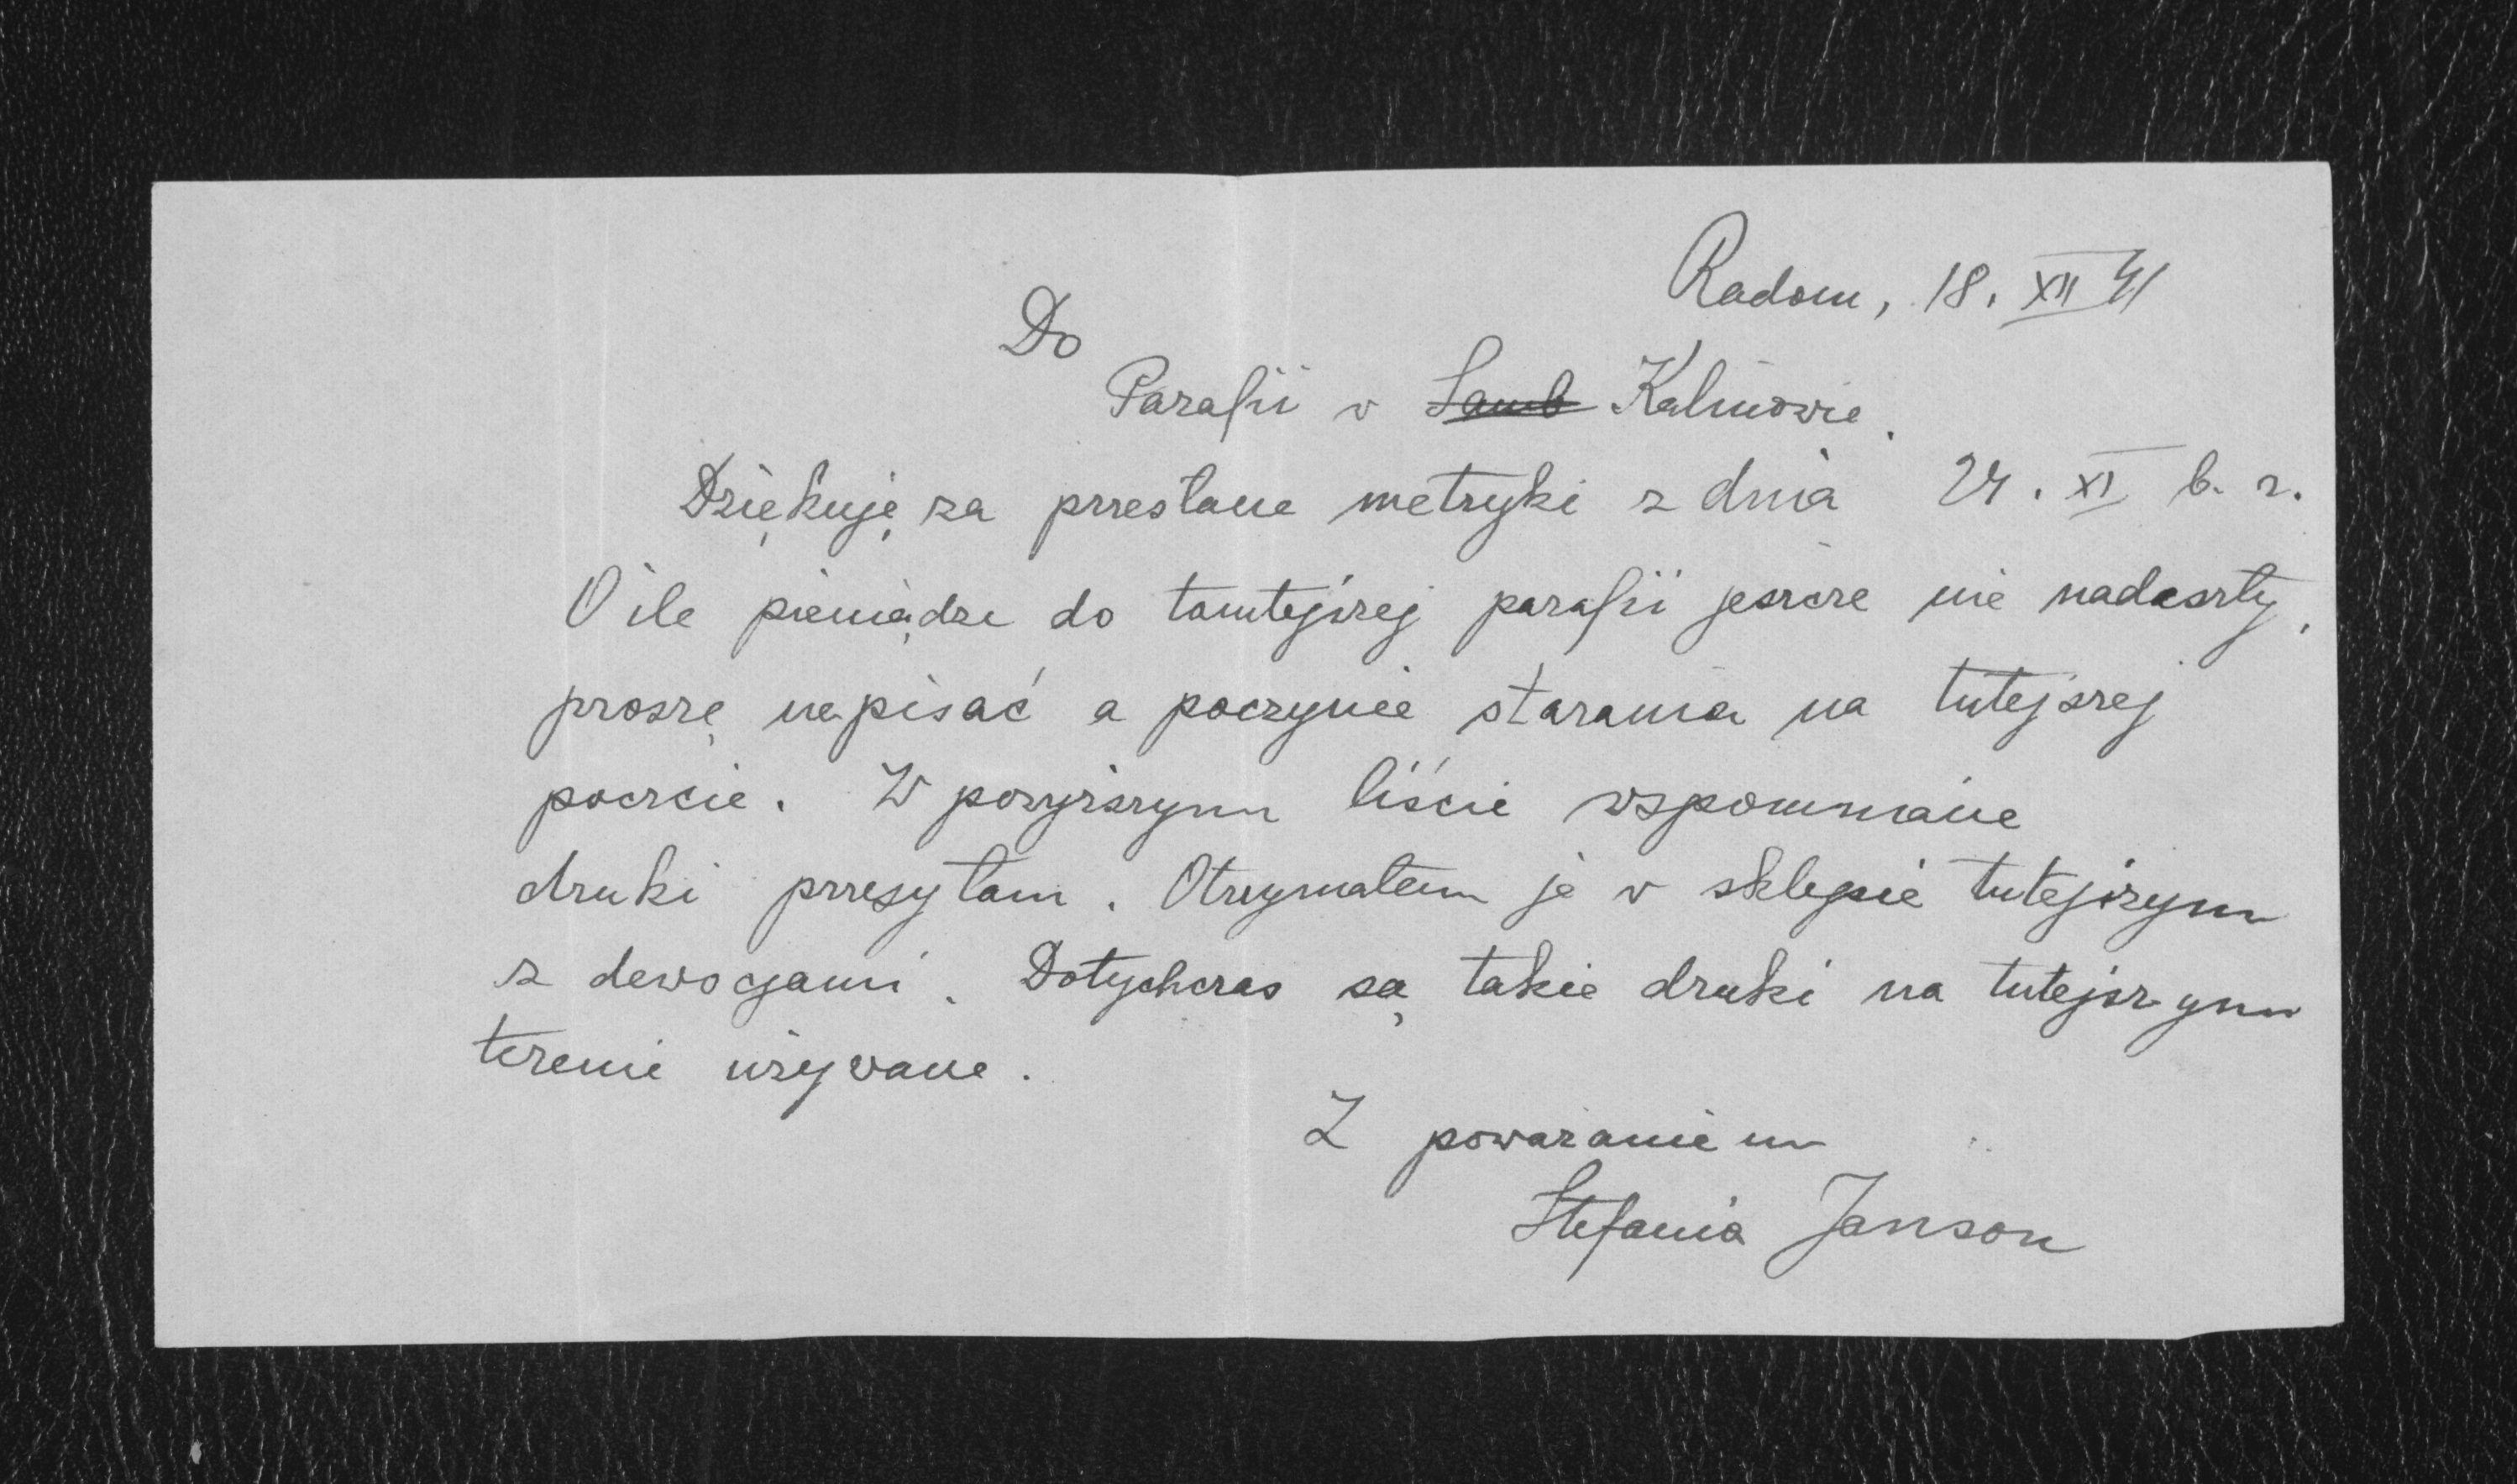 Radom, 18. XII 41
Do
Parafii w Samb Kalinowie.
Dziękuję za przesłane metryki z dnia 24. XI b. r.
O ile pieniądze do tamtejszej parafii jeszcze nie nadeszły,
proszę napisać a poczynię starania na tutejszej
poczcie. W powyższym liście wspomniane
druki przesyłam. Otrzymałem je w sklepie tutejszym
z dewocjami. Dotychczas są takie druki na tutejszym
terenie używane.
Z poważaniem
Stefania Janson